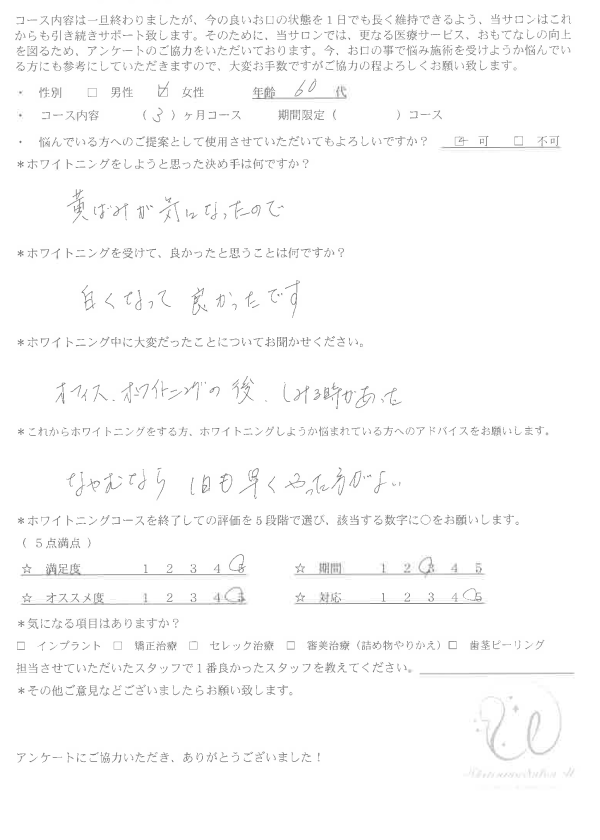 コース内容は一旦終わりましたが、今の良いお口の状態を1日でも長く維持できるよう、当サロンはこれ
からも引き続きサポート致します。そのために、当サロンでは、更なる医療サービス、おもてなしの向上
を図るため、アンケートのご協力をいただいております。今、お口の事で悩み施術を受けようか悩んでい
る方にも参考にしていただきますので、大変お手数ですがご協力の程よろしくお願い致します。
・ 性別 □ 男性 ☑ 女性 年齢 60 代
・ コース内容 （ 3 ）ヶ月コース 期間限定（ ）コース
・ 悩んでいる方へのご提案として使用させていただいてもよろしいですか？ ☑ 可 □ 不可
＊ホワイトニングをしようと思った決め手は何ですか？
黄ばみが気になったので
＊ホワイトニングを受けて、良かったと思うことは何ですか？
白くなって良かったです
＊ホワイトニング中に大変だったことについてお聞かせください。
オフィスホワイトニングの後、しみる時があった
＊これからホワイトニングをする方、ホワイトニングしようか悩まれている方へのアドバイスをお願いします。
なやむなら 1日も早くやった方がよい
＊ホワイトニングコースを終了しての評価を5段階で選び、該当する数字に○をお願いします。
（ 5点満点 ）
☆ 満足度 1 2 3 4 5 ☆ 期間 1 2 3 4 5
☆ オススメ度 1 2 3 4 5 ☆ 対応 1 2 3 4 5
＊気になる項目はありますか？
□ インプラント □ 矯正治療 □ セレック治療 □ 審美治療（詰め物やりかえ）□ 歯茎ピーリング
担当させていただいたスタッフで1番良かったスタッフを教えてください。
＊その他ご意見などございましたらお願い致します。
アンケートにご協力いただき、ありがとうございました！